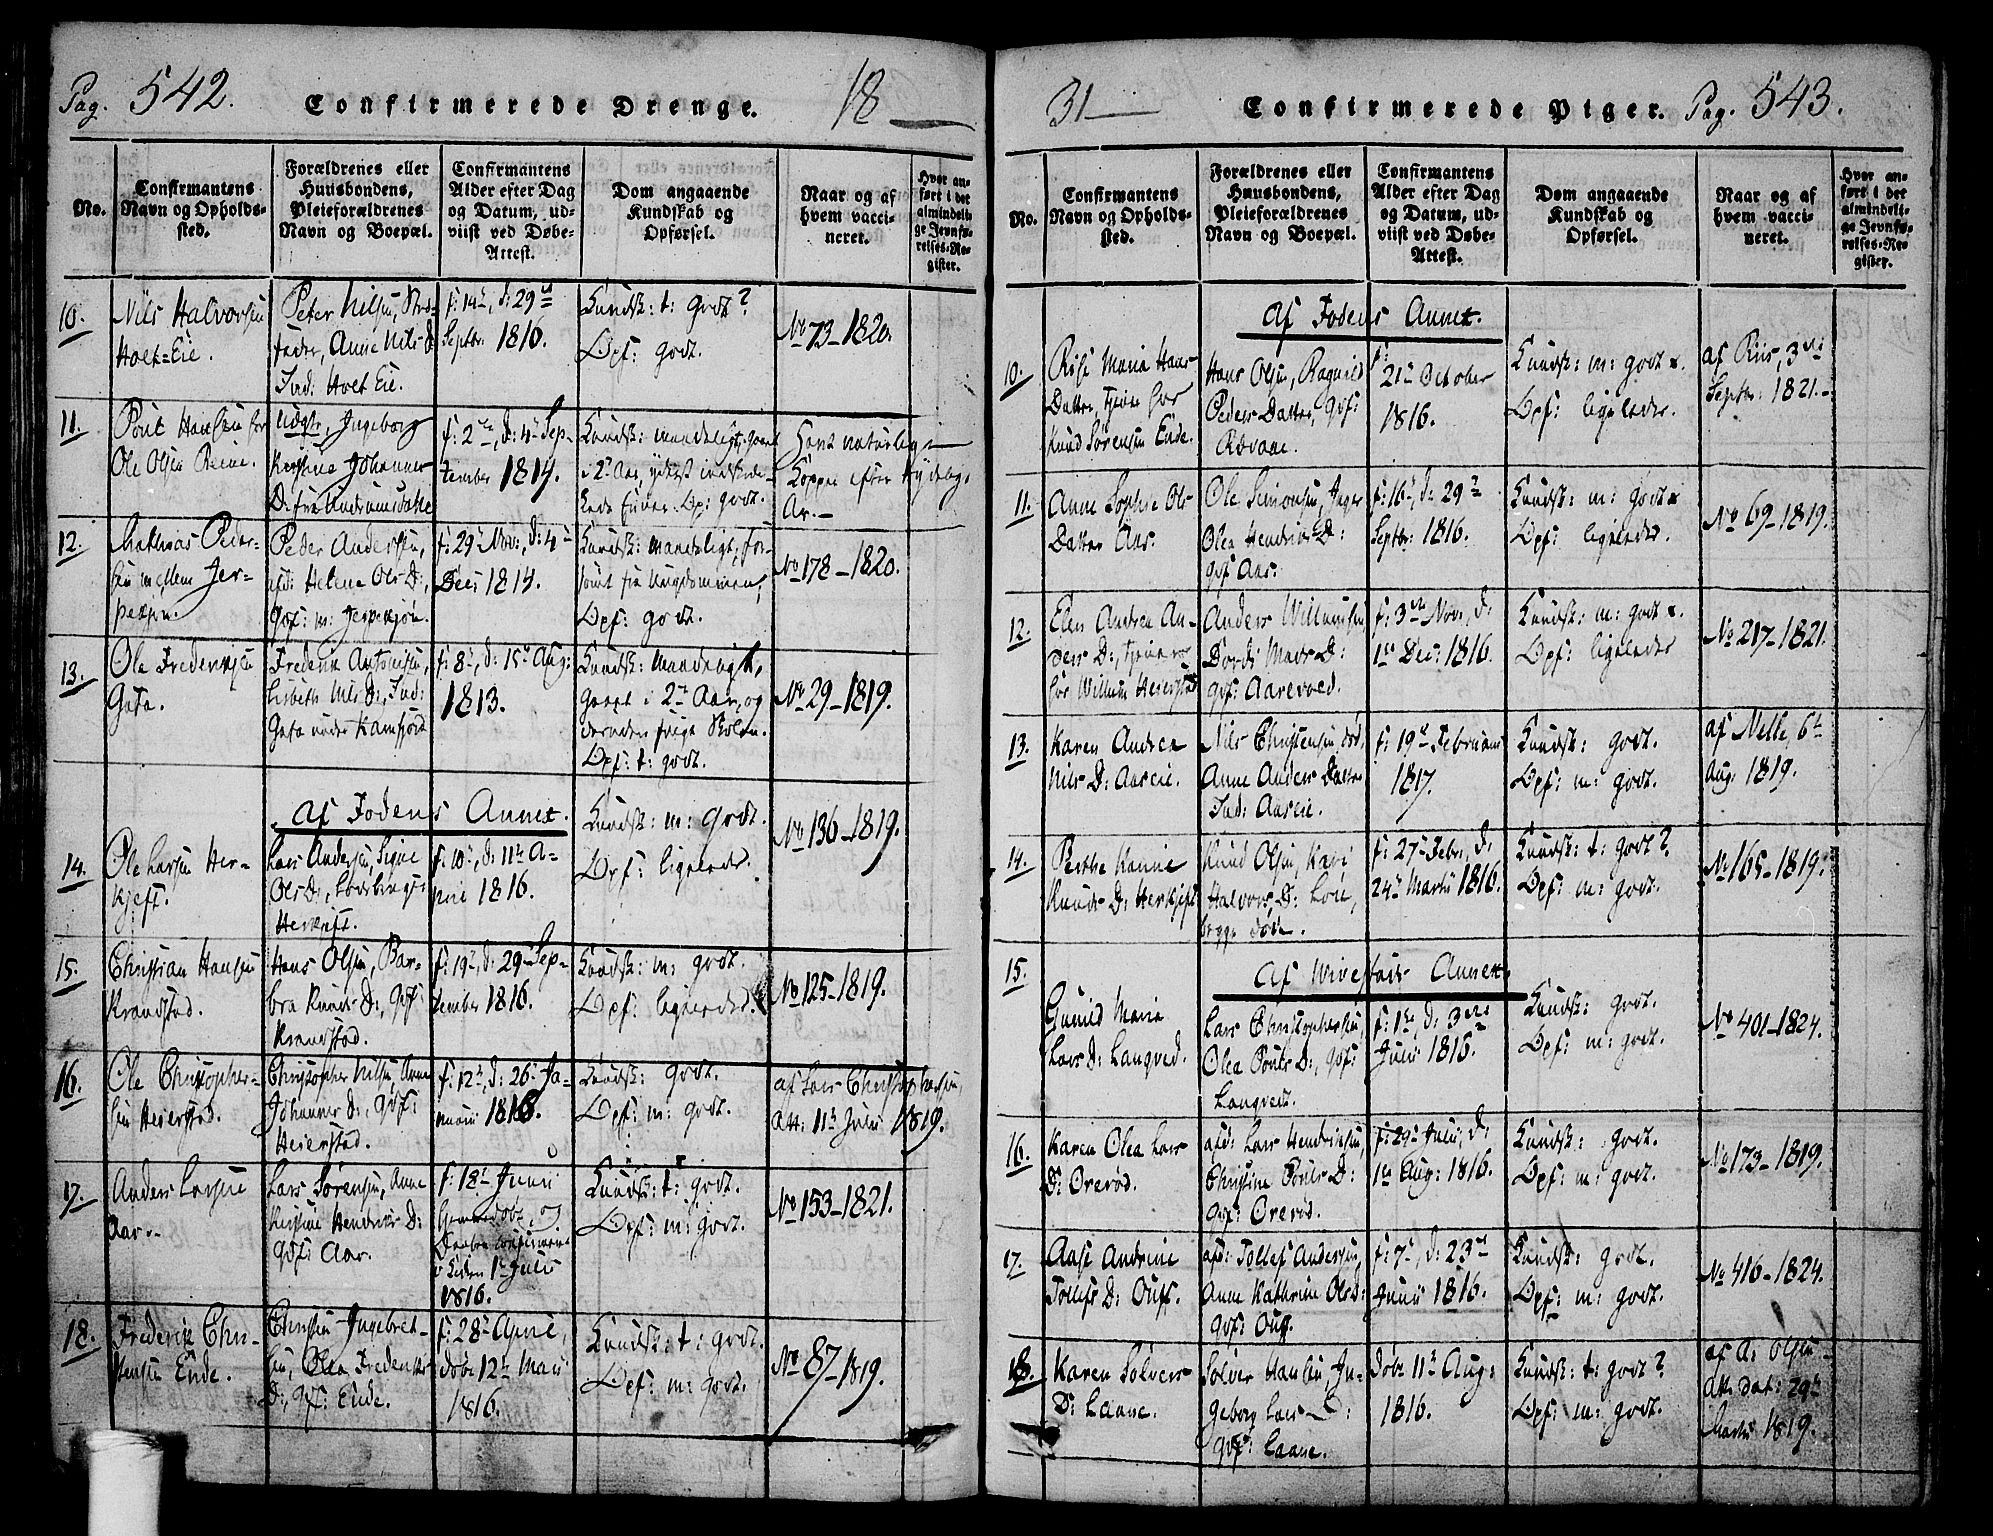 Pag. 542. Confirmerede Drenge. 18
No.
Confirmantens Navn og Opholdssted.
Forældrenes eller Huusbondens, Pleieforældrenes Navn og Boepæl.
Confirmantens Alder efter Dag og Datum, udviist ved Døbe-Attest.
Dom angaaende Kundskab og Opførsel.
Naar og af hvem vaccineret.
Hvor anført i det almindelige Jevnførelses-Register.
10.
Nils Halvorsen
Hoel-Eie.
Peter Nilsen,
Anne Nils D.
Ind: Hoel Eie.
f: 14de, d: 29de
Septbr: 1816.
Kundsk: t: godt?
Opf: godt.
No 73-1820.
11.
Poul Hansen hos
Ole Olsen Reine.
Udgbr, Ingeborg
Kirstine Johannes
D.
f: 2den, d: 4de Sep-
tember 1814.
Kundsk: maadeligt, gaaet
i 2de Aar,
Opf: godt.
havt naturlige
Kopper efter tydelige
Ar.
12.
Mathias Peder-
sen mellem Jer-
Peder Andersen,
afd: Helene Ols D:,
Gbf: m: Jeppesjøn.
f: 29de Nov:, d: 4de
Dec: 1814.
Kundsk: maadeligt, for-
sømt fra Ungdommen,
Opf: godt.
No 178-1820.
13.
Ole Frederiksen
Gata.
Frederik Antonisen,
Lisbeth Nils D:, Ind:
Gata under Kamfjord
f: 8de, d: 15de Aug:
1813.
Kundsk: maadeligt,
gaaet i 2de Aar, og
desuden søgt Skolen.
Opf: t: godt.
No 29-1819.
Af Jødens Annex.
14.
Ole Larsen Her-
kjeft.
Lars Andersen, Signe
Ols D:,
Herkjeft.
f: 10de, d: 11te A-
pril 1816.
Kundsk: m: godt.
Opf: ligeledes.
No 136-1819.
15.
Christian Hansen
Krandstad.
Hans Olsen, Bar-
bra Knuds D:, Gbf:
Krandstad.
f: 19de, d: 29de Sep-
tember 1816.
Kundsk: m: godt.
Opf: ligeledes.
No 125-1819.
16.
Ole Christopher-
sen Heierstad.
Christopher Nilsen, Anne
Johannes D:, Gbf:
Heierstad.
f: 12te, d: 26de Ja-
nuari 1816.
Kundsk: godt.
Opf: m: godt.
af Lars Christophersen,
Att: 11te Julii 1819.
17.
Anders Larsen
Aar.
Lars Sørensen, Anne
Kirstine Hendriks D:
Gbf: Aar.
f: 18de Junii
Hjemmedøbt, og
Daaben confirmeret
i Kirken 1de Julii
1816.
Kundsk: t: godt.
Opf: m: godt.
No 153-1821.
18.
Frederik Chri-
stensen Ende.
Christen Ingebret-
sen, Olea Frederiks
D:, Gbf: Ende.
f: 28de April,
døbt 12te Maii
1816.
Kundsk: t: godt.
Opf: m: godt.
No 87-1819.
31 Confirmerede Piger. Pag. 543.
No.
Confirmantens Navn og Opholdssted.
Forældrenes eller Huusbondens, Pleieforældrenes Navn og Boepæl.
Confirmantens Alder efter Dag og Datum, udviist ved Døbe-Attest.
Dom angaaende Kundskab og Opførsel.
Naar og af hvem vaccineret.
Hvor anført i det almindelige Jevnførelses-Register.
Af Jødens Annex.
10.
Maria Hans
Datter, tjener hos
Knud Sørensen Ende.
Hans Olsen, Ragnild
Peders Datter, Gbf:
Rævaae.
f:
21de October
1816.
Kundsk: m: godt.
Opf: ligeledes.
af Riis, 3die
Septbr: 1821.
11.
Anne Sophie Ols
Datter Aas.
Ole Simonsen, Jæger
Olea Hendriks D:
Gbf: Aas.
f: 16de, d: 29de
Septbr: 1816.
Kundsk: m: godt.
Opf: ligeledes.
No 69-1819.
12.
Elen Andrea An-
ders D:, tjener
hos Willum Heierstad
Anders Willumsen,
Dordi Mads D:
Gbf: Aarevold.
f: 3die Nov:, d:
1ste Dec: 1816.
Kundsk: m: godt.
Opf: ligeledes
No 217-1821.
13.
Karen Andrea
Nils D: Aaseie.
Nils Christensen, død,
Anne Anders Datter
Ind: Aaseie.
f: 19de Februari
1817.
Kundsk: godt.
Opf: m: godt.
af Nelle, 6te
Aug: 1819.
14.
Berthe Karine
Knuds D: Herkjeft
Knud Olsen, Kari
Halvors D:
begge døde.
f: 27de Febr:, d:
24de Martii 1816.
Kundsk: t: godt?
Opf: m: godt.
No 165-1819.
Af Wivestads Annex.
15.
Gunild Maria
Lars D: Langved.
Lars Christophersen,
Olea Pouls D:, Gbf:
Langved.
f: 1ste, d: 3die
Julii 1815.
Kundsk: godt.
Opf: m: godt.
No 401-1824.
16.
Karen Olea Lars
D: Orerød.
afd: Lars Hendriksen,
Christine Pouls D:
Gbf: Orerød.
f: 29de Julii, d:
1ste Aug: 1816.
Kundsk: godt.
Opf: m: godt.
No 173-1819.
17.
Aase Andrine
Tollefs D: Ouff.
afd: Tollef Andersen,
Anne Kathrine Ols D:
Gbf: Ouff.
f: 7de, d: 23de
Junii 1816.
Kundsk: godt.
Opf: m: godt.
No 416-1824.
18.
Karen Sølvers
D: Laane.
Sølver Hansen, In-
geborg Lars D:
Gbf: Laane.
døbt 11te Aug:
1816.
Kundsk: t: godt?
Opf: m: godt.
af A: Olsen
Att: dat: 29de
Martii 1819.